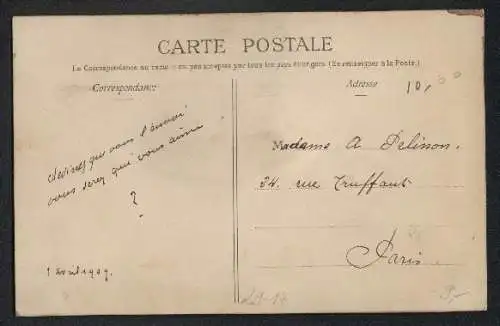 CARTE POSTALE
La Correspondance au recto n'est pas acceptée par tous les pays étrangers (Se renseigner à la Poste.)
Correspondance
Adresse
10,00
devinez qui vous l'envoi
vous serez qui vous aime
?
1 avril 1909.
Madame A Pelisson.
34. rue Truffaut
Paris